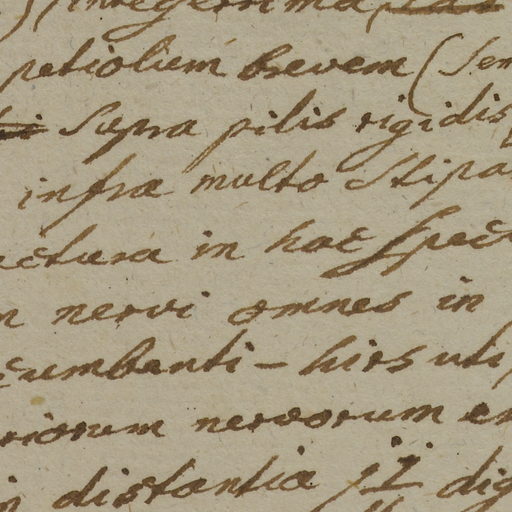 integerrima
petiolum brevem (Sem
supra pilis rigidis
infra multo stipa
ctura in hac speci
n nervi omnes in
cumbenti - hirsuti
riorum nervorum en
distantia dig